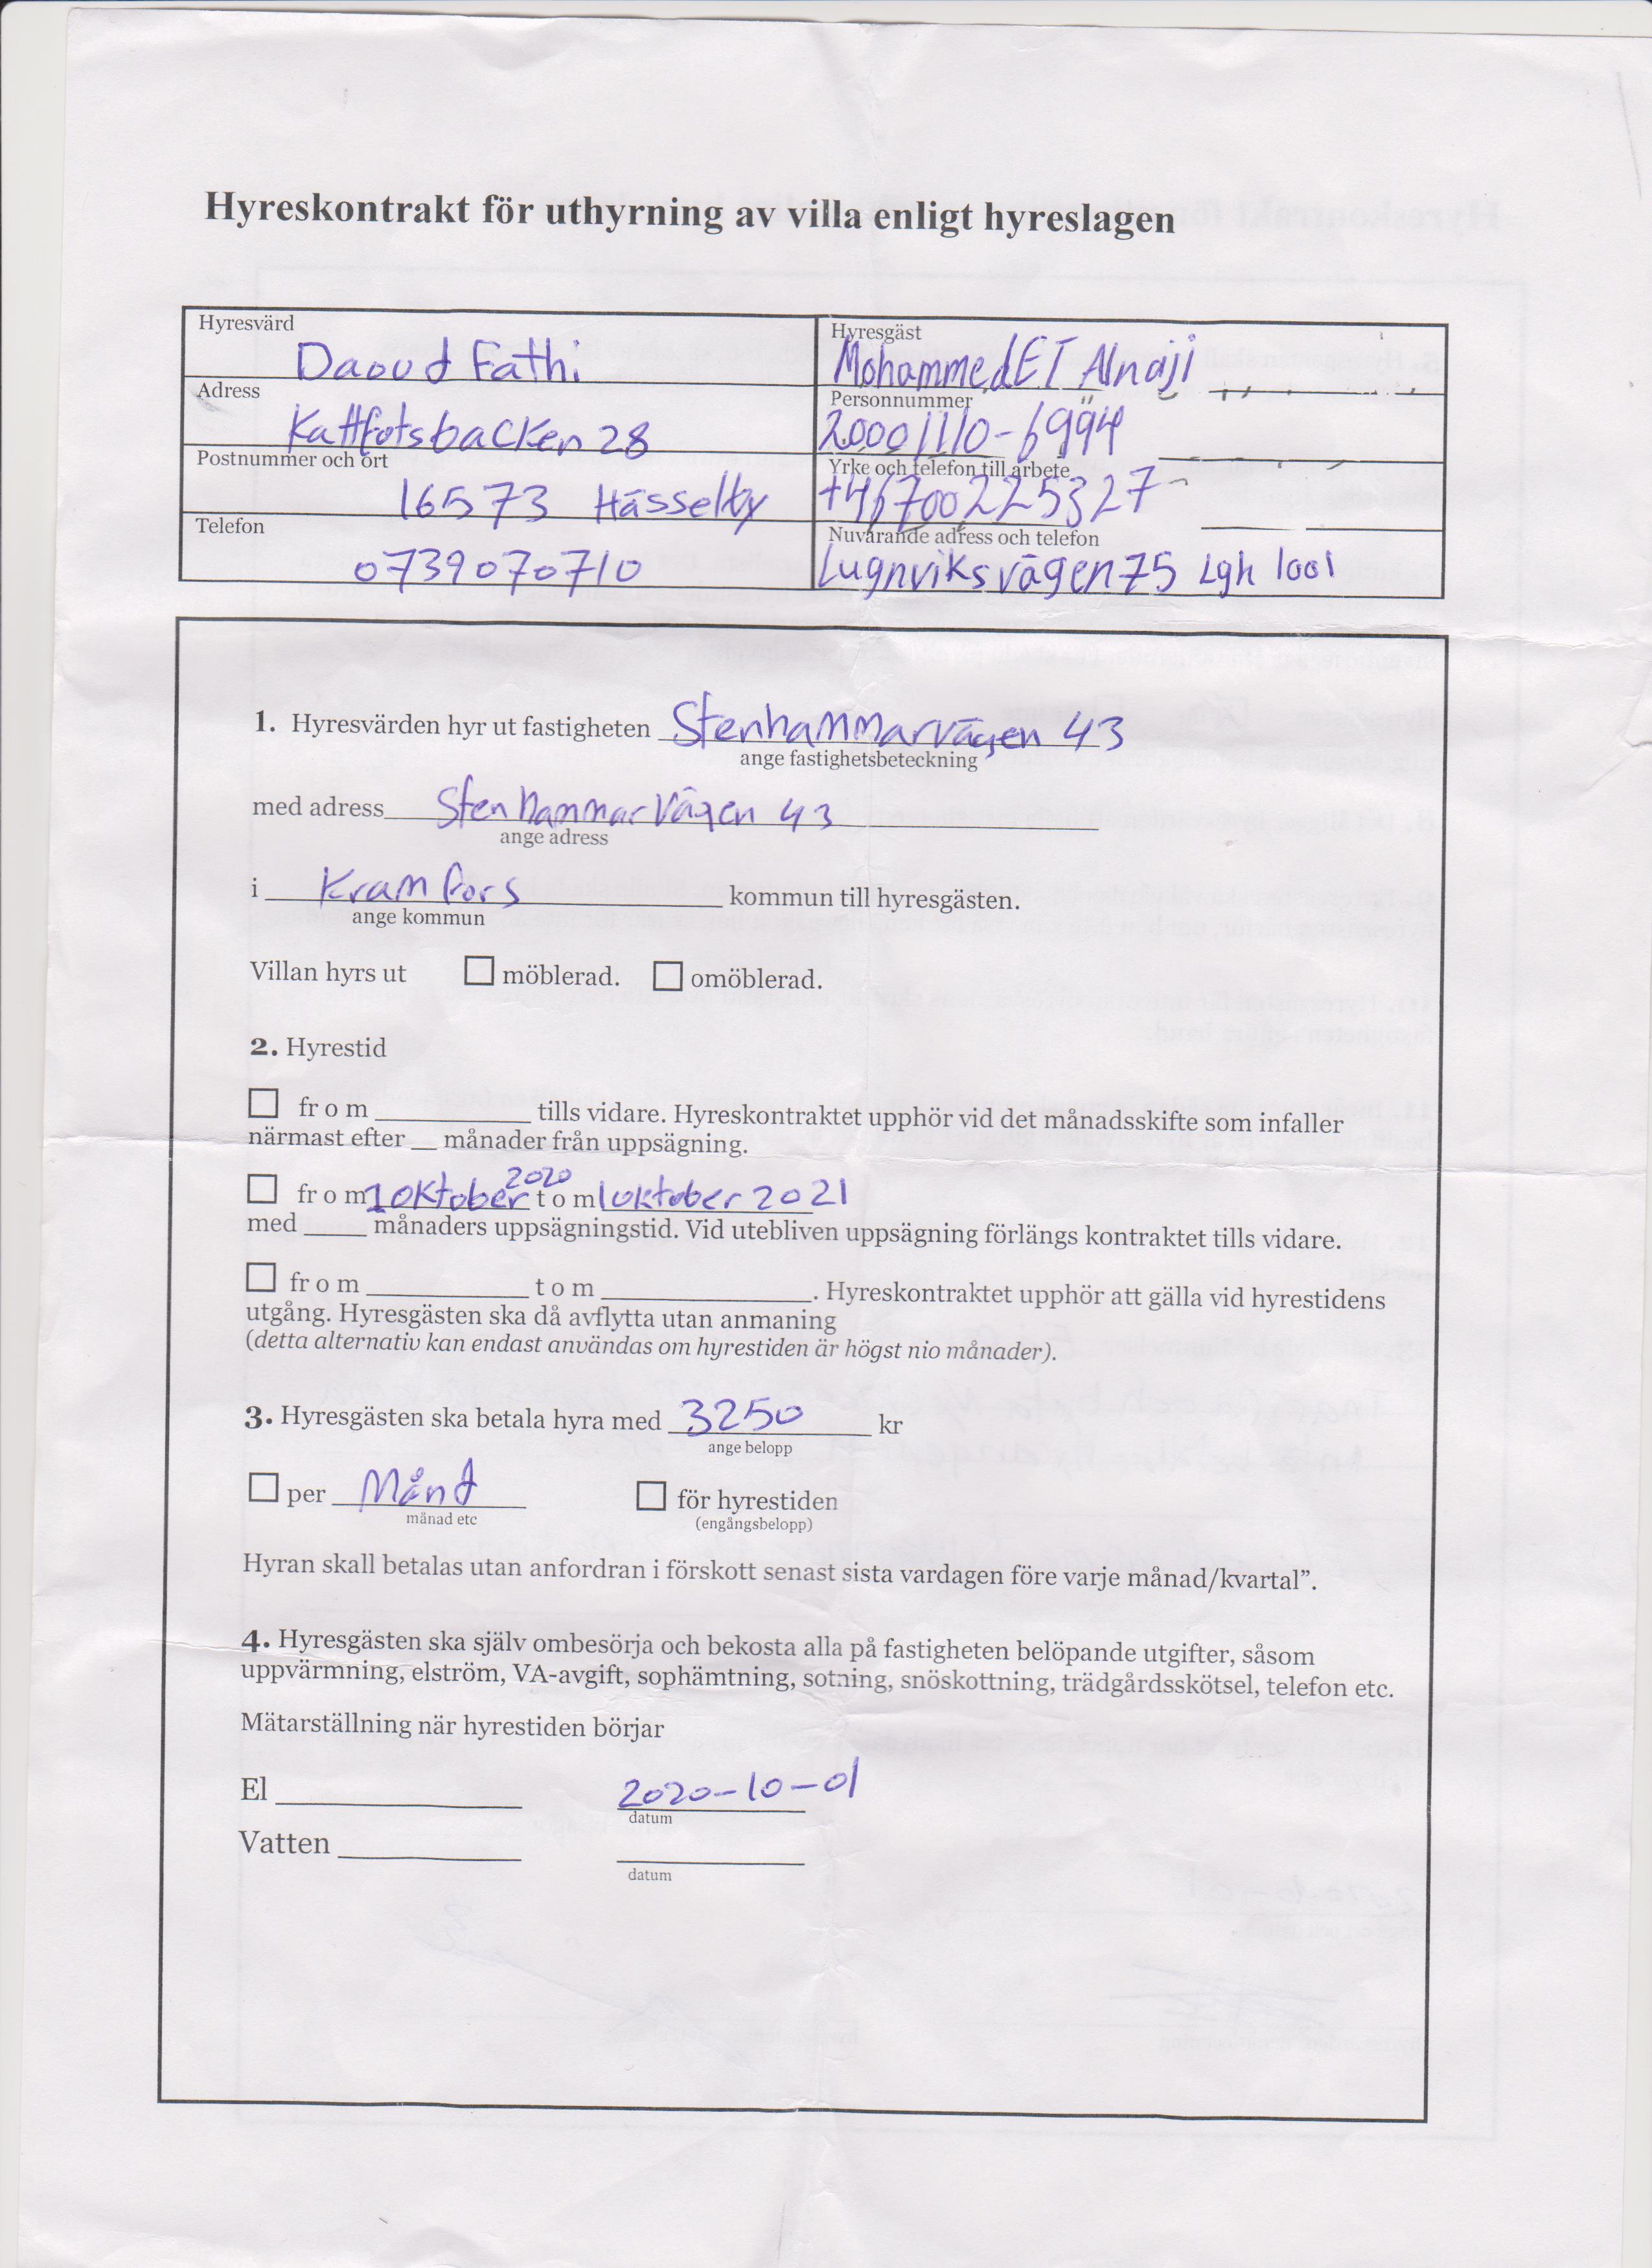 Hyreskontrakt för uthyrning av villa enligt hyreslagen
Hyresvärd
Daoud Fathi
Adress
Kattfotsbacken 28
Postnummer och ort
16573 Hässelby
Telefon
0739070710
Hyresgäst
Mohammed E I Alnaji
Personnummer
20001110-6994
Yrke och telefon till arbete
+46700225327
Nuvarande adress och telefon
Lugnviksvägen 75 Lgh 1001
1. Hyresvärden hyr ut fastigheten Stenhammarvägen 43
ange fastighetsbeteckning
med adress Stenhammarvägen 43
ange adress
i Kramfors kommun till hyresgästen.
ange kommun
Villan hyrs ut möblerad. omöblerad.
2. Hyrestid
fr o m tills vidare. Hyreskontraktet upphör vid det månadsskifte som infaller
närmast efter månader från uppsägning.
fr o m 1 oktober 2020 t o m 1 oktober 2021
med månaders uppsägningstid. Vid utebliven uppsägning förlängs kontraktet tills vidare.
fr o m t o m . Hyreskontraktet upphör att gälla vid hyrestidens
utgång. Hyresgästen ska då avflytta utan anmaning
(detta alternativ kan endast användas om hyrestiden är högst nio månader).
3. Hyresgästen ska betala hyra med 3250 kr
ange belopp
per Månd för hyrestiden
månad etc (engångsbelopp)
Hyran skall betalas utan anfordran i förskott senast sista vardagen före varje månad/kvartal”.
4. Hyresgästen ska själv ombesörja och bekosta alla på fastigheten belöpande utgifter, såsom
uppvärmning, elström, VA-avgift, sophämtning, sotning, snöskottning, trädgårdsskötsel, telefon etc.
Mätarställning när hyrestiden börjar
El 2020-10-01
datum
Vatten
datum